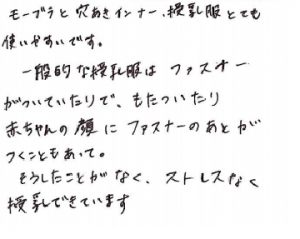 モーブラと穴あきインナー、授乳服とても
使いやすいです。
一般的な授乳服は ファスナー
がついていたりで、もたついたり
赤ちゃんの顔にファスナーのあとが
つくこともあって。
そうしたことがなく、ストレスなく
授乳できています